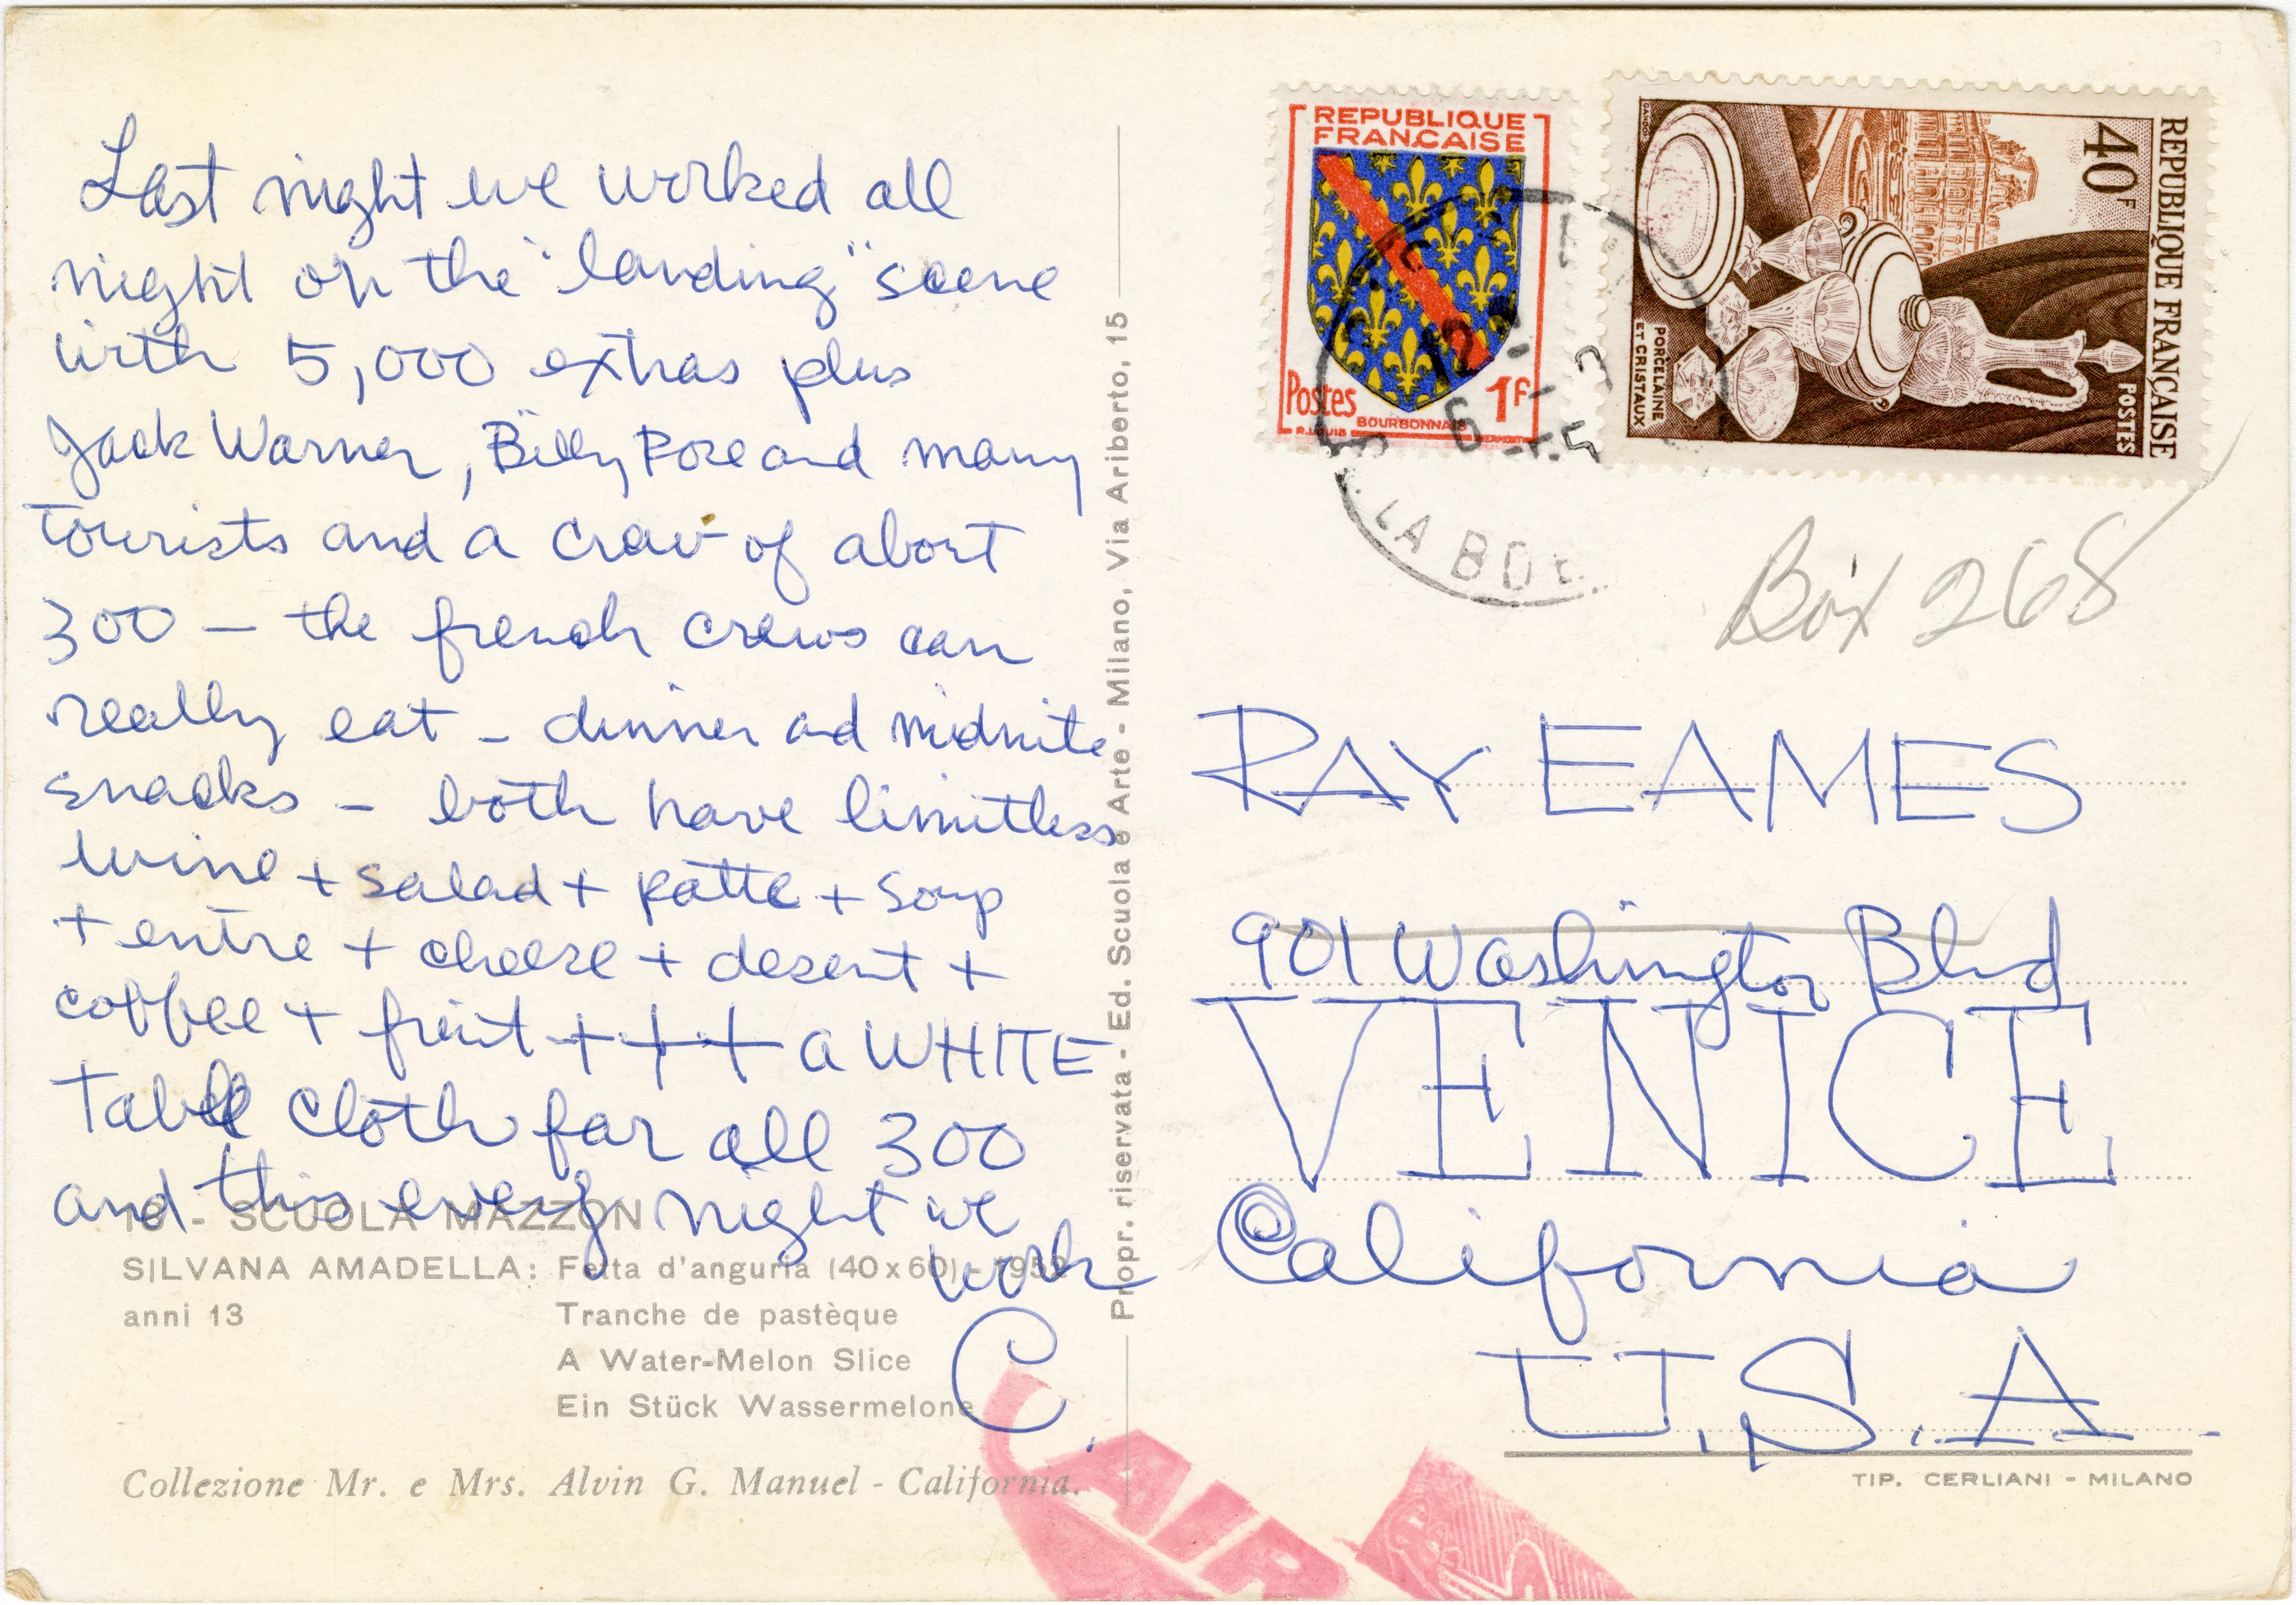 Last night we worked all
night on the "landing" scene
with 5,000 extras plus
Jack Warner, Billy Rose and many
tourists and a crew of about
300 — the french crews can
really eat - dinner and midnite
snacks - both have limitless
wine + salad + patte + soup
+ entre + cheese + desert +
coffee + fruit + + + a WHITE
Table cloth for all 300
and this every night we
work
C.
16 - SCUOLA MAZZON
SILVANA AMADELLA: Fetta d'anguria (40x60) - 1952
anni 13
Tranche de pastèque
A Water-Melon Slice
Ein Stück Wassermelone
Collezione Mr. e Mrs. Alvin G. Manuel - California.
Propr. riservata - Ed. Scuola e Arte - Milano, Via Ariberto, 15
REPUBLIQUE
FRANÇAISE
Postes
1F
BOURBONNAIS
R.LOUIS
REPUBLIQUE FRANÇAISE
40F
POSTES
PORCELAINE
ET CRISTAUX
GANDON
12
6
LA BOE
Box 268
RAY EAMES
901 Washington Blvd
VENICE
California
U.S.A.
TIP. CERLIANI - MILANO
AIR